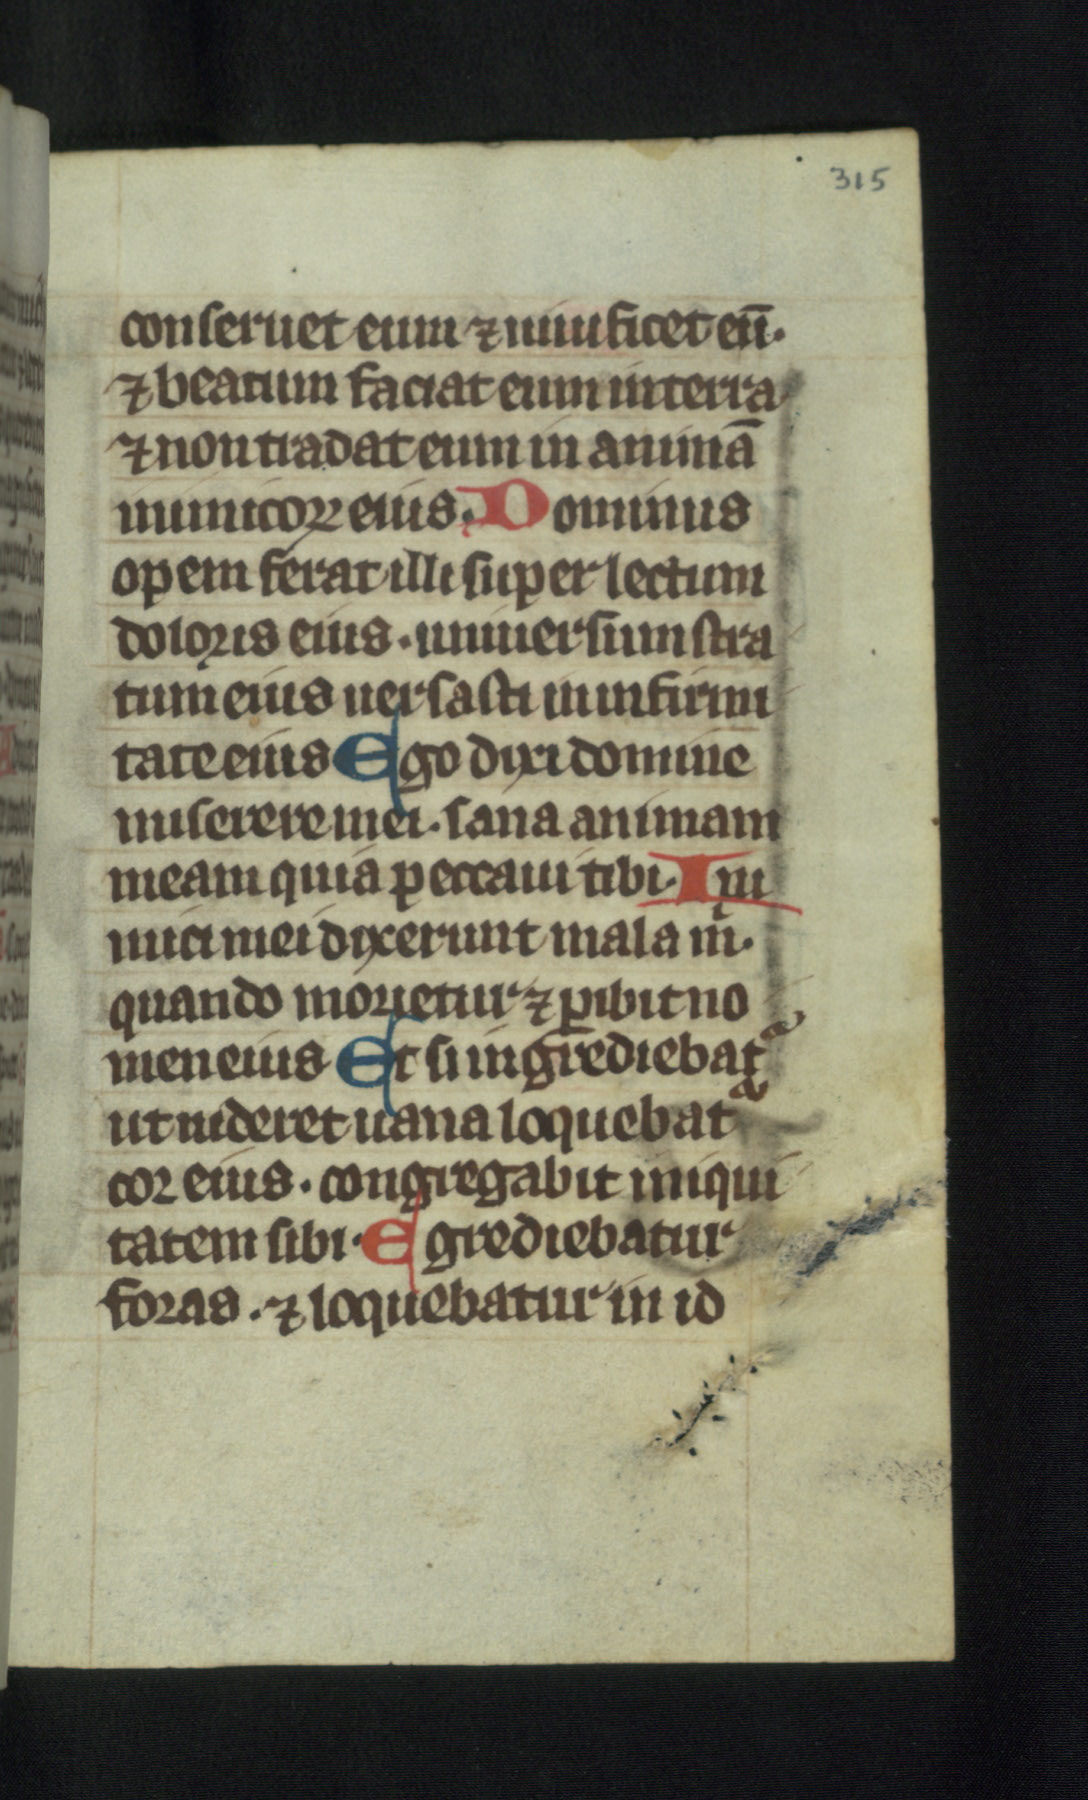 315
conseruet eum ⁊ uiuificet eū·
⁊ beatum faciat eum in terra
⁊ non tradat eum in animā
inimicoꝝ eius. Dominus
opem ferat illi super lectum
doloris eius · uniuersum stra
tum eius uersasti in infirmi
tate eius Ego dixi domine
miserere mei · sana animam
meam quia peccaui tibi· Ini
mici mei dixerunt mala m̄·
quando morietur ⁊ ꝑibit no
men eius Et si ingrediebat᷑
ut uideret uana loquebat᷑
cor eius · congregabit iniqui
tatem sibi· Egrediebatur
foras · ⁊ loquebatur in id